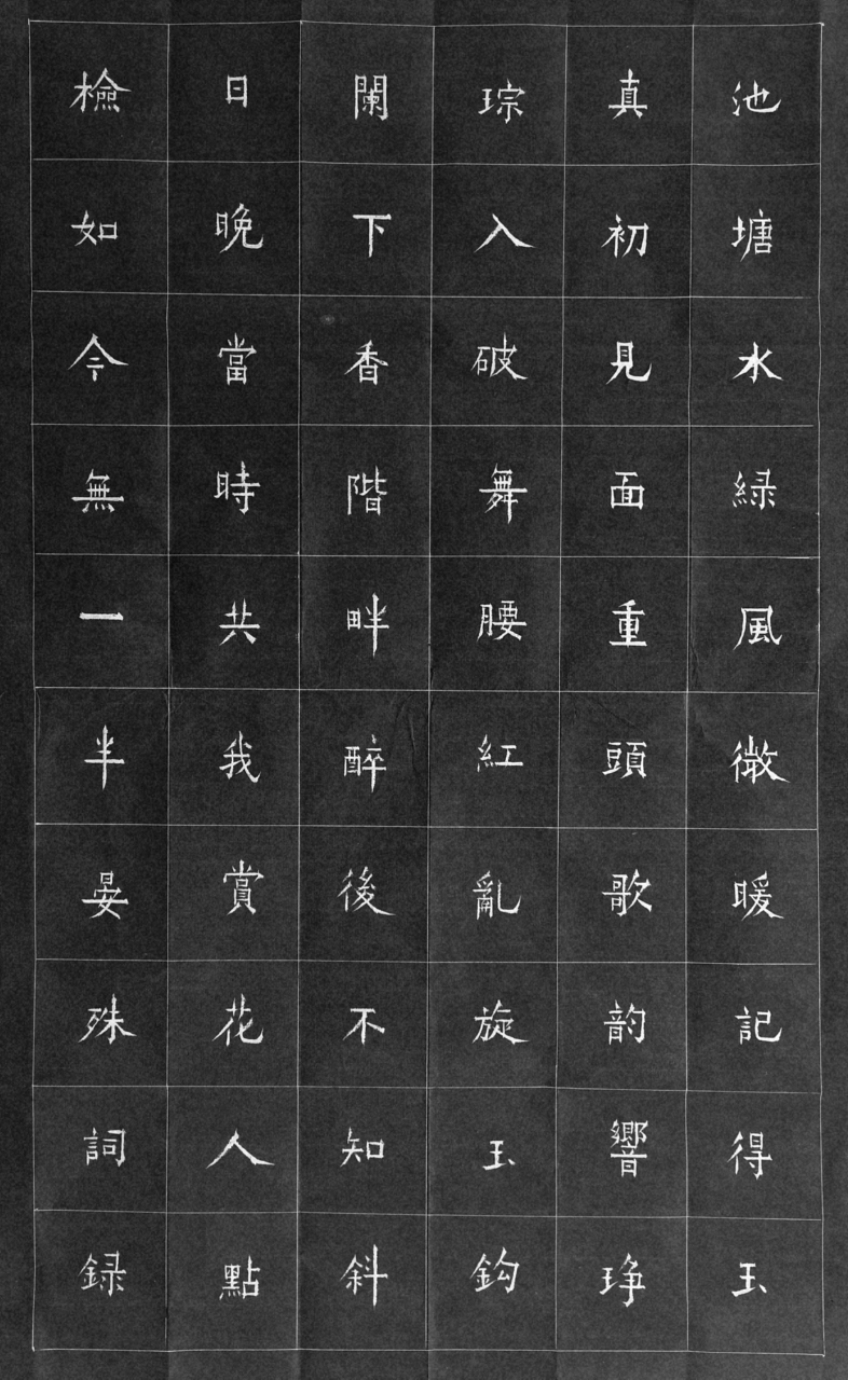 池塘水緑風微暖記得玉
真初見面重頭歌韵響琤
琮入破舞腰紅亂旋玉鈎
闌下香階畔醉後不知斜
日晚當時共我賞花人點
檢如今無一半晏殊詞録